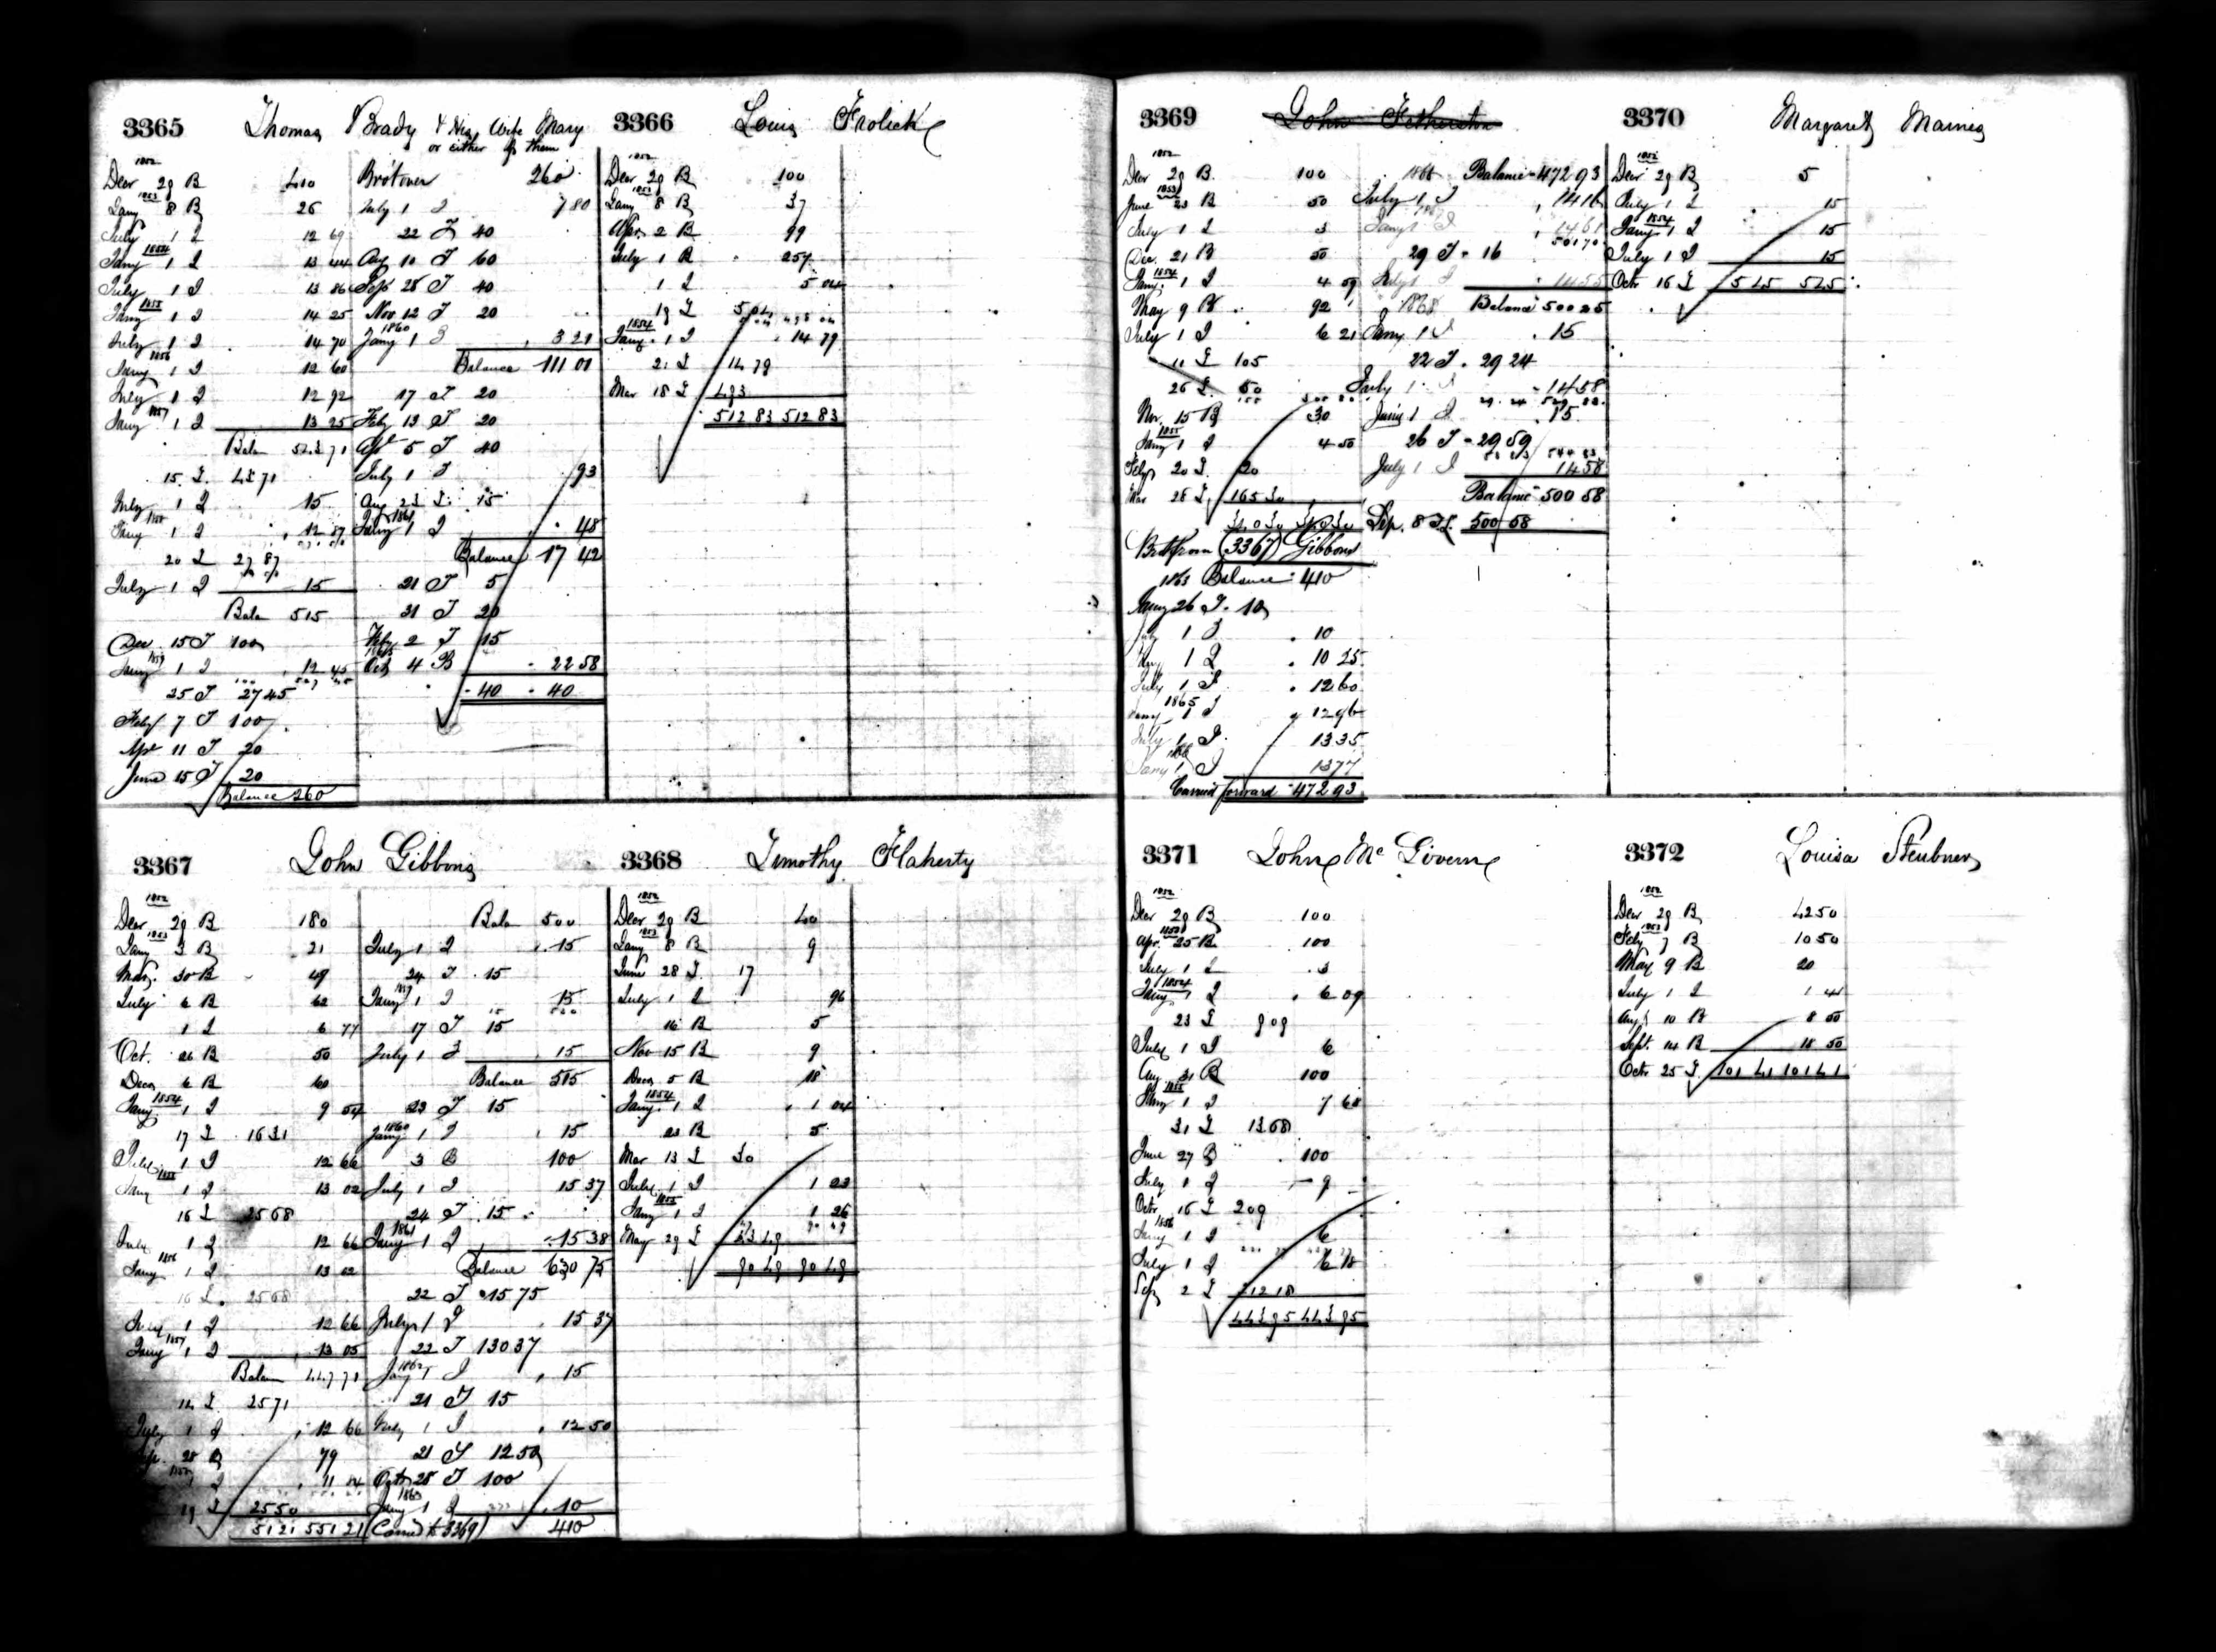 3365 Thomas Brady & His Wife Mary
or either of them
1852
Decr 29 B 400
1853
Jany 8 B 26
July 1 I 12 69
1854
Jany 1 I 13 44
July 1 I 13 86
1855
Jany 1 I 14 25
July 1 I 14 70
1856
Jany 1 I 12 60
July 1 I 12 92
1857
Jany 1 I 13 25
Balan 523 71
15 T 43 71
July 1 I 15
1858
Jany 1 I 12 87
20 T 27 87
July 1 I 15
Balan 515
Dec 15 T 100
1859
Jany 1 I 12 45
25 T 27 45
Feby 7 T 100
Apr 11 T 20
June 15 T 20
Balance 260
Brot over 260
July 1 I 7 80
22 T 40
Aug 10 T 60
Sept 28 T 40
Nov 12 T 20
1860
Jany 1 I 3 21
Balance 111 01
17 T 20
Feby 13 T 20
Apr 5 T 40
July 1 I 93
Aug 23 T 15
1861
Jany 1 I 48
Balance 17 42
21 T 5
31 T 20
Feby 2 T 15
Oct 4 B 22 58
40 40
3366 Louis Frolick
1852
Decr 29 B 100
1853
Jany 8 B 37
Apr 2 B 99
July 1 B 257
1 I 5 04
19 T 5 04
1854
Jany 1 I 14 79
21 T 14 79
Mar 18 T 493
512 83 512 83
3367 John Gibbons
1852
Decr 29 B 180
1853
Jany 3 B 21
Mar. 30 B 49
July 6 B 62
1 I 6 77
Oct. 26 B 50
Dec 6 B 60
1854
Jany 1 I 9 54
17 T 16 31
July 1 I 12 66
1855
Jany 1 I 13 02
16 T 25 68
July 1 I 12 66
1856
Jany 1 I 13 02
16 T 25 68
July 1 I 12 66
1857
Jany 1 I 13 05
Balan 447 71
14 T 25 71
July 1 I 12 66
28 B 79
1 I 11 84
19 T 25 50
51 21 551 21
Balan 500
July 1 I 15
24 T 15
Jany 1 I 15
17 T 15
July 1 I 15
Balance 515
23 T 15
1860
Jany 1 I 15
3 B 100
July 1 I 15 37
24 T 15
1861
Jany 1 I 15 38
Balance 630 75
22 T 15 75
July 1 I 15 37
22 T 130 37
1862
Jany 1 I 15
21 T 15
July 1 I 12 50
21 T 12 50
Oct 28 T 100
1863
Jany 1 I 10
(Carried to 3369) 410
3368 Timothy Flaherty
1852
Decr 29 B 40
1853
Jany 8 B 9
June 28 T 17
July 1 I 96
16 B 5
Nov 15 B 9
Dec 5 B 18
1854
Jany 1 I 1 04
23 B 5
Mar 13 T 30
July 1 I 1 23
1855
Jany 1 I 1 26
May 29 T 43 49
90 49 90 49
3369 John Fetherston
1852
Decr 29 B 100
1853
June 23 B 50
July 1 I 3
Dec. 21 B 50
1854
Jany. 1 I 4 59
May 9 B 92
July 1 I 6 21
11 T 105
26 T 50
Nov. 15 B 30
1855
Jany 1 I 4 50
Feby 20 T 20
Mar 28 T 165 30
340 30 340 30
Brot from (3367) Gibbons
1863 Balance 410
Jany 26 T 10
July 1 I 10
Jany 1 I 10 25
July 1 I 12 60
1865
Jany 1 I 12 96
July 1 I 13 35
1866
Jany 1 I 13 77
Carried forward 472 93
1866 Balance 472 93
July 1 I 14 16
Jany 1 I 14 61
501 70
29 T 16
July 1 I 14 55
1868 Balance 500 25
Jany 1 I 15
22 T 29 24
July 1 I 14 58
Jany 1 I 15
26 T 29 59
July 1 I 14 58
Balance 500 58
Sep. 8 T 500 58
3370 Margaret Marnies
1852
Decr 29 B 5
July 1 I 15
1854
Jany 1 I 15
July 1 I 15
Octr 16 T 5 45 5 45
3371 John McGovern
1852
Decr 29 B 100
1853
Apr. 25 B 100
July 1 I 3
1854
Jany 1 I 6 09
23 T 9 09
July 1 I 6
Aug 31 B 100
1855
Jany 1 I 7 68
31 T 13 68
June 27 B 100
July 1 I 9
Octr 16 T 209
1856
Jany 1 I 6
July 1 I 6 18
Sep 2 T 212 18
443 95 443 95
3372 Louisa Steubner
1852
Decr 29 B 42 50
1853
Feby 7 B 10 50
May 9 B 20
July 1 I 1 41
Augt 10 B 8 50
Sept. 14 B 18 50
Octr 25 T 101 41 101 41